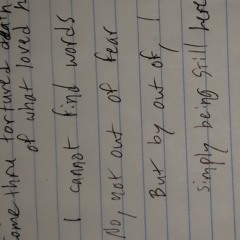 some thru tortured death
of what loved h
I cannot find words
No, not out of fear
But by out of, !
simply being still here